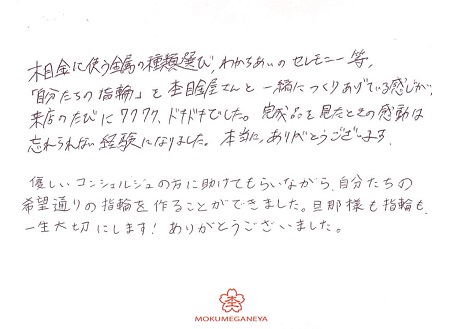 木目金に使う金属の種類選び、わかちあいのセレモニー等、
「自分たちの指輪」を杢目金屋さんと一緒につくりあげている感じが、
来店のたびにワクワク、ドキドキでした。完成品を見たときの感動は
忘れられない経験になりました。本当に、ありがとうございます。
優しいコンシェルジュの方に助けてもらいながら、自分たちの
希望通りの指輪を作ることができました。旦那様も指輪も、
一生大切にします！ありがとうございました。
杢
MOKUMEGANEYA